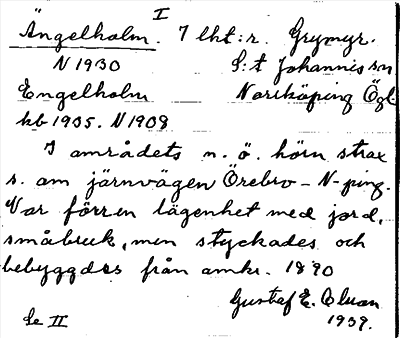 I
Ängelholm. 7 lht:r. Grymyr.
N 1930 S:t Johannis sn
Engelholm Norrköping Ögl.
hb 1935. N 1909
I området n. ö. hörn strax
s. om järnvägen Örebro - N-ping.
Var förr en lägenhet med jord,
småbruk, men styckades och
bebyggdes från omkr. 1890
Gustaf E.
Se II 1939.